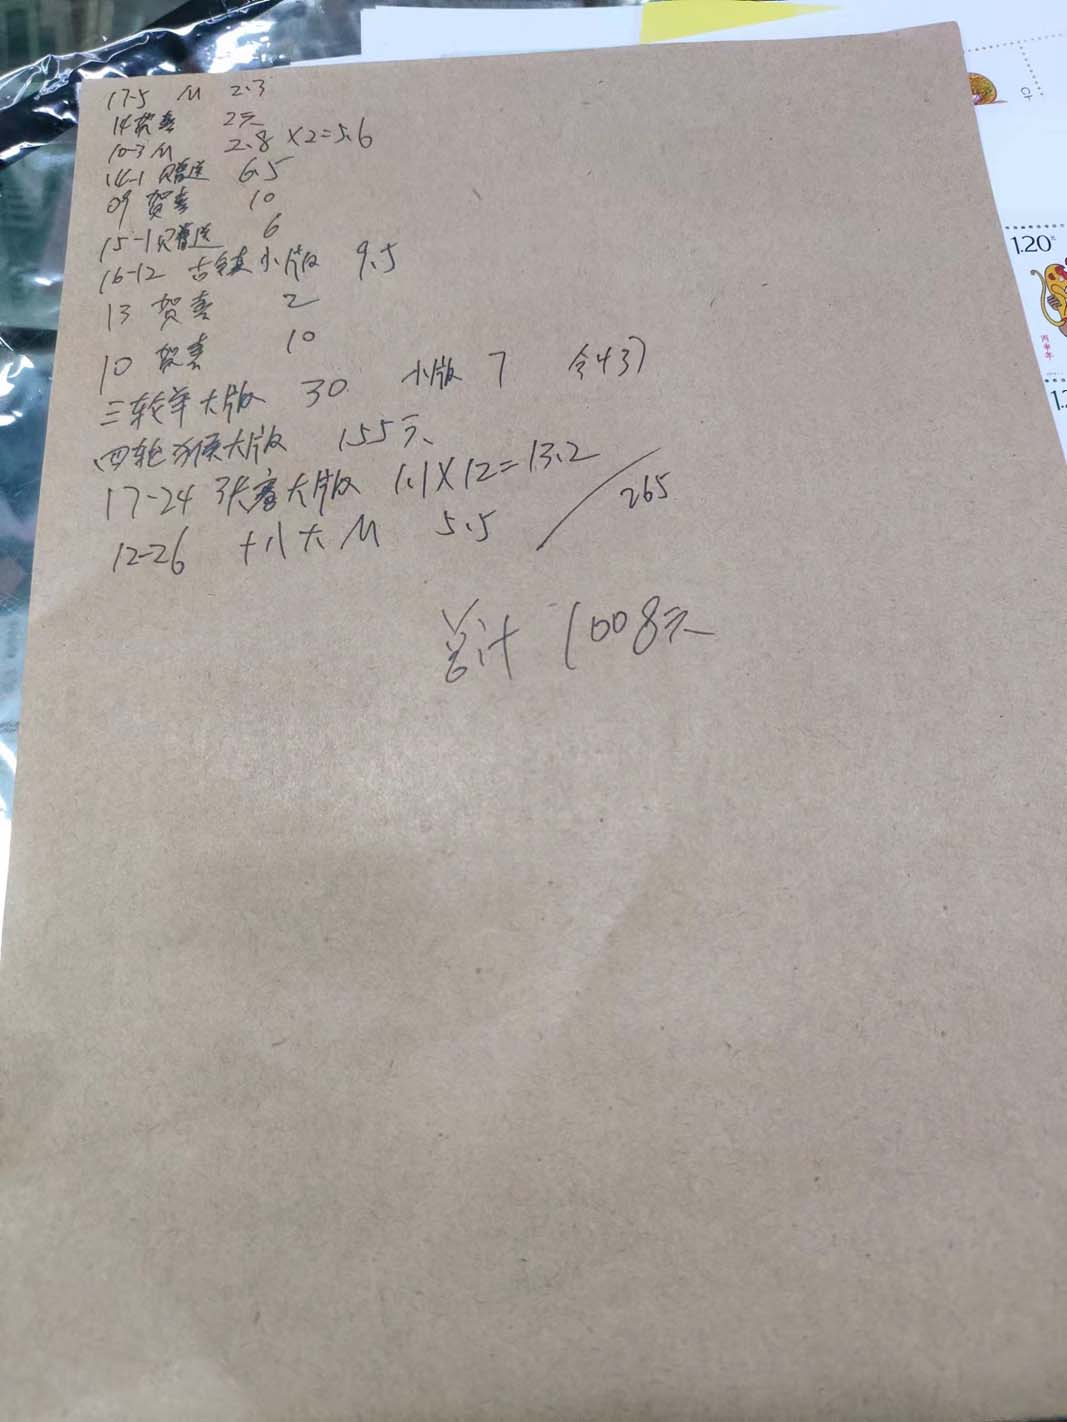 17-5 M 2.3
14贺喜 2元
10-3 M 2.8×2=5.6
14-1 赠送 6.5
09 贺喜 10
15-1 赠送 6
16-12 古镇小版 9.5
13 贺喜 2
10 贺喜 10
三轮羊大版 30 小版 7 合437
四轮猴大版 155元
17-24 张骞大版 1.1×12=13.2
12-26 十八大 M 5.5 265
总计 1008元
1.20元
丙申年